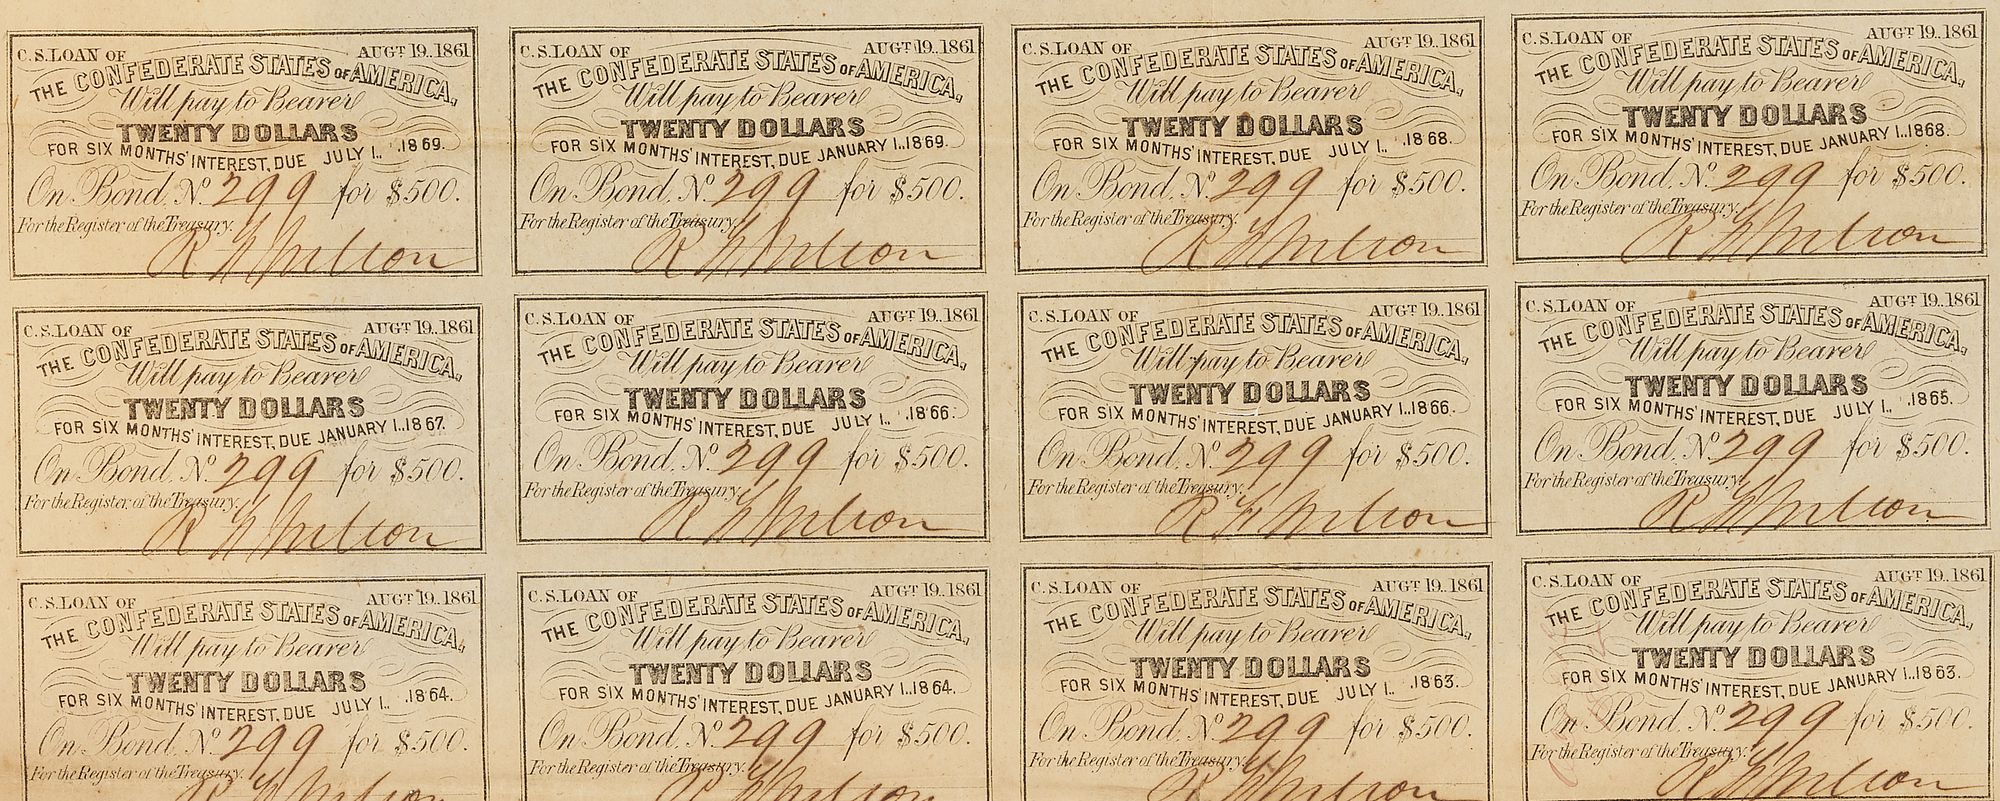 C.S. LOAN OF AUGT 19.. 1861
THE CONFEDERATE STATES OF AMERICA,
Will pay to Bearer
TWENTY DOLLARS
FOR SIX MONTHS' INTEREST, DUE JULY 1.. 1869.
On Bond, No. 299 for $500.
For the Register of the Treasury.
C.S. LOAN OF AUGT 19.. 1861
THE CONFEDERATE STATES OF AMERICA,
Will pay to Bearer
TWENTY DOLLARS
FOR SIX MONTHS' INTEREST, DUE JANUARY 1.. 1869.
On Bond, No. 299 for $500.
For the Register of the Treasury.
C.S. LOAN OF AUGT 19.. 1861
THE CONFEDERATE STATES OF AMERICA,
Will pay to Bearer
TWENTY DOLLARS
FOR SIX MONTHS' INTEREST, DUE JULY 1.. 1868.
On Bond, No. 299 for $500.
For the Register of the Treasury.
C.S. LOAN OF AUGT 19.. 1861
THE CONFEDERATE STATES OF AMERICA,
Will pay to Bearer
TWENTY DOLLARS
FOR SIX MONTHS' INTEREST, DUE JANUARY 1.. 1868.
On Bond, No. 299 for $500.
For the Register of the Treasury.
C.S. LOAN OF AUGT 19.. 1861
THE CONFEDERATE STATES OF AMERICA,
Will pay to Bearer
TWENTY DOLLARS
FOR SIX MONTHS' INTEREST, DUE JANUARY 1.. 1867.
On Bond, No. 299 for $500.
For the Register of the Treasury.
C.S. LOAN OF AUGT 19.. 1861
THE CONFEDERATE STATES OF AMERICA,
Will pay to Bearer
TWENTY DOLLARS
FOR SIX MONTHS' INTEREST, DUE JULY 1.. 1866.
On Bond, No. 299 for $500.
For the Register of the Treasury.
C.S. LOAN OF AUGT 19.. 1861
THE CONFEDERATE STATES OF AMERICA,
Will pay to Bearer
TWENTY DOLLARS
FOR SIX MONTHS' INTEREST, DUE JANUARY 1.. 1866.
On Bond, No. 299 for $500.
For the Register of the Treasury.
C.S. LOAN OF AUGT 19.. 1861
THE CONFEDERATE STATES OF AMERICA,
Will pay to Bearer
TWENTY DOLLARS
FOR SIX MONTHS' INTEREST, DUE JULY 1.. 1865.
On Bond, No. 299 for $500.
For the Register of the Treasury.
C.S. LOAN OF AUGT 19.. 1861
THE CONFEDERATE STATES OF AMERICA,
Will pay to Bearer
TWENTY DOLLARS
FOR SIX MONTHS' INTEREST, DUE JULY 1.. 1864.
On Bond, No. 299 for $500.
For the Register of the Treasury.
C.S. LOAN OF AUGT 19.. 1861
THE CONFEDERATE STATES OF AMERICA,
Will pay to Bearer
TWENTY DOLLARS
FOR SIX MONTHS' INTEREST, DUE JANUARY 1.. 1864.
On Bond, No. 299 for $500.
For the Register of the Treasury.
C.S. LOAN OF AUGT 19.. 1861
THE CONFEDERATE STATES OF AMERICA,
Will pay to Bearer
TWENTY DOLLARS
FOR SIX MONTHS' INTEREST, DUE JULY 1.. 1863.
On Bond, No. 299 for $500.
For the Register of the Treasury.
C.S. LOAN OF AUGT 19.. 1861
THE CONFEDERATE STATES OF AMERICA,
Will pay to Bearer
TWENTY DOLLARS
FOR SIX MONTHS' INTEREST, DUE JANUARY 1.. 1863.
On Bond, No. 299 for $500.
For the Register of the Treasury.